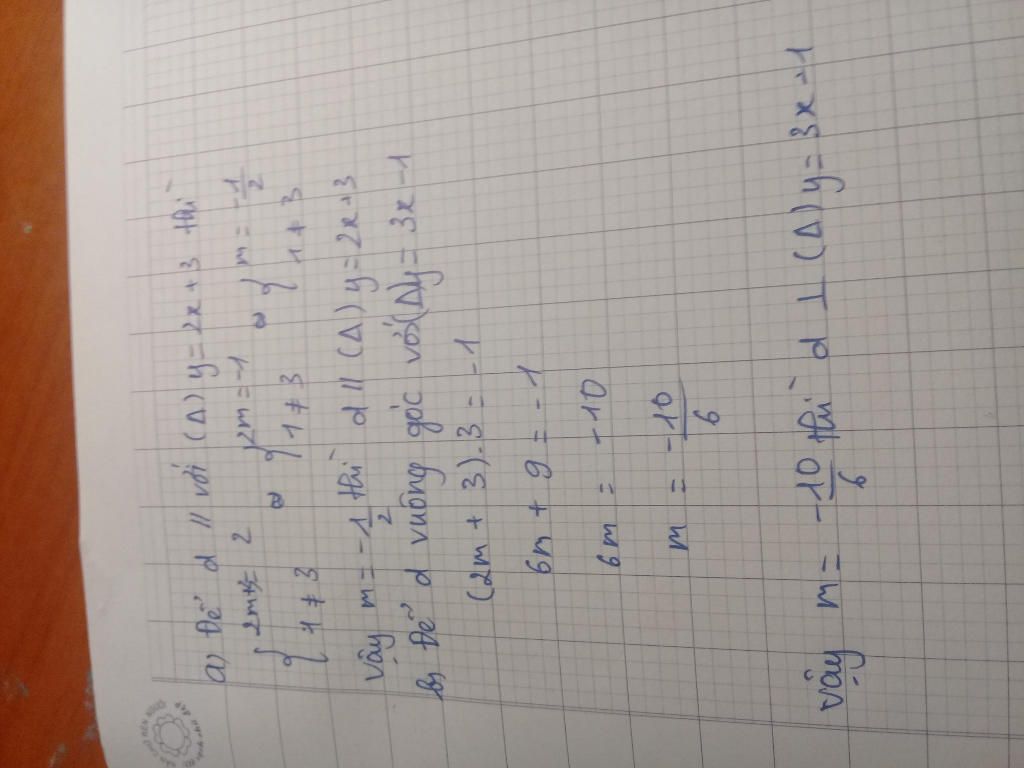 a) Để d // với (Δ) y = 2x + 3 thì
{ 2m+ 2 ⇔ { 2m = -1 ⇔ { m = -1/2
{ 1 ≠ 3 { 1 ≠ 3 { 1 ≠ 3
vậy m = -1/2 thì d // (Δ) y = 2x + 3
b) Để d vuông góc với (Δ) y = 3x - 1
(2m + 3).3 = -1
6m + 9 = -1
6m = -10
m = -10/6
vậy m = -10/6 thì d ⊥ (Δ) y = 3x - 1